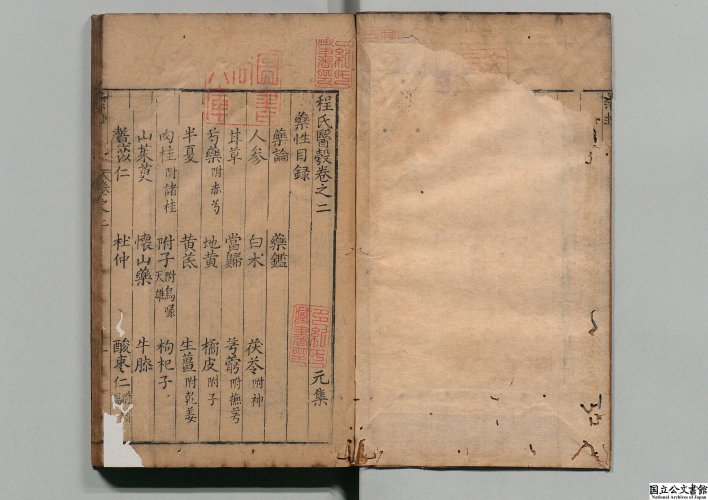 程氏醫彀卷之二 元集
藥性目録
藥論 藥鑑
人參 白朮 茯苓附神
甘草 當歸 芎藭附撫芎
芍藥附赤芍 地黄 橘皮附子
半夏 黄芪 生薑附乾姜
肉桂附諸桂 附子附烏喙天雄 枸杞子
山茱萸 懷山藥 牛膝
薏苡仁 杜仲 酸棗仁
国立公文書館
National Archives of Japan